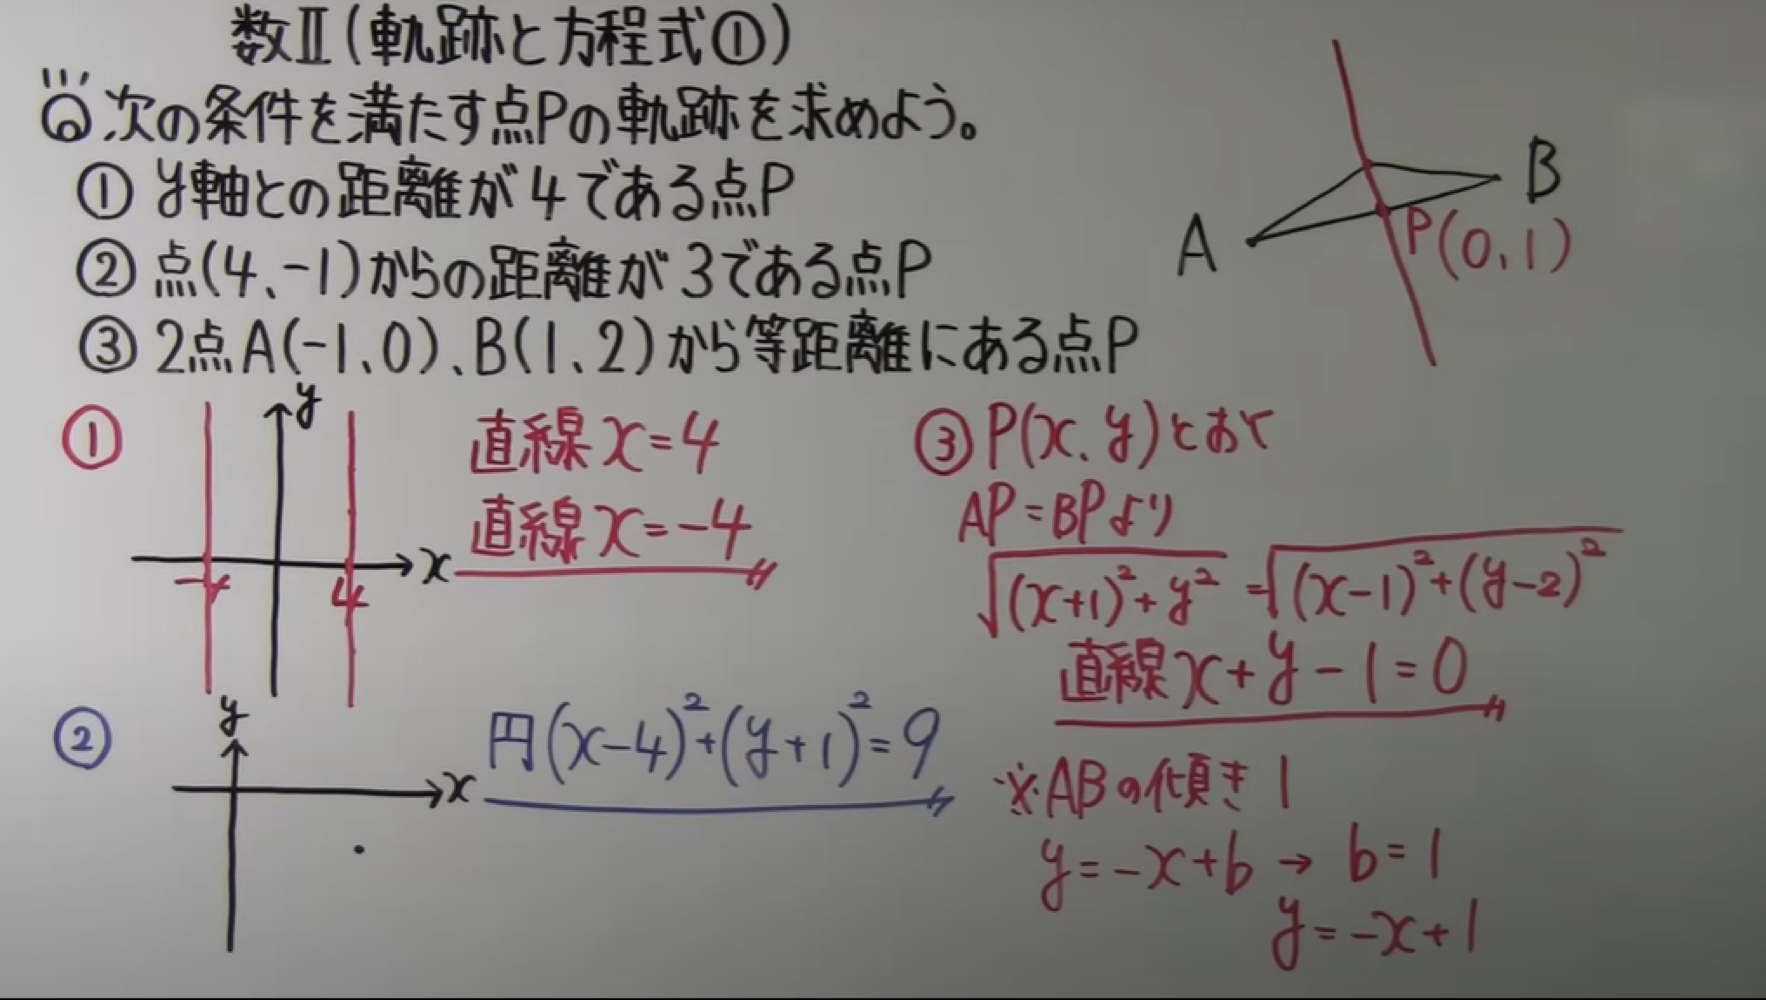 数Ⅱ(軌跡と方程式①)
Q 次の条件を満たす点Pの軌跡を求めよう。
① y軸との距離が4である点P
② 点(4、-1)からの距離が3である点P
③ 2点A(-1、0)、B(1、2)から等距離にある点P
A
B
P(0,1)
①
y
x
-4
4
直線 x=4
直線 x=-4
②
y
x
円(x-4)²+(y+1)²=9
③ P(x、y)とおく
AP=BPより
√((x+1)²+y²) =√((x-1)²+(y-2)²)
直線 x+y-1=0
※ABの傾き 1
y=-x+b → b=1
y=-x+1